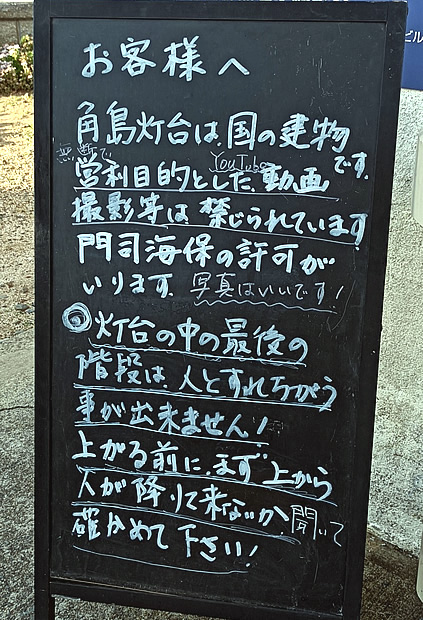 お客様へ
角島灯台は、国の建物
です。
無断で
YouTube
営利目的とした、動画
撮影等は禁じられています。
門司海保の許可が
いります。写真はいいです！
◎灯台の中の最後の
階段は、人とすれちがう
事が出来ません！
上がる前に、まず上から
人が降りて来ないか、聞いて
確かめて下さい！
ビル